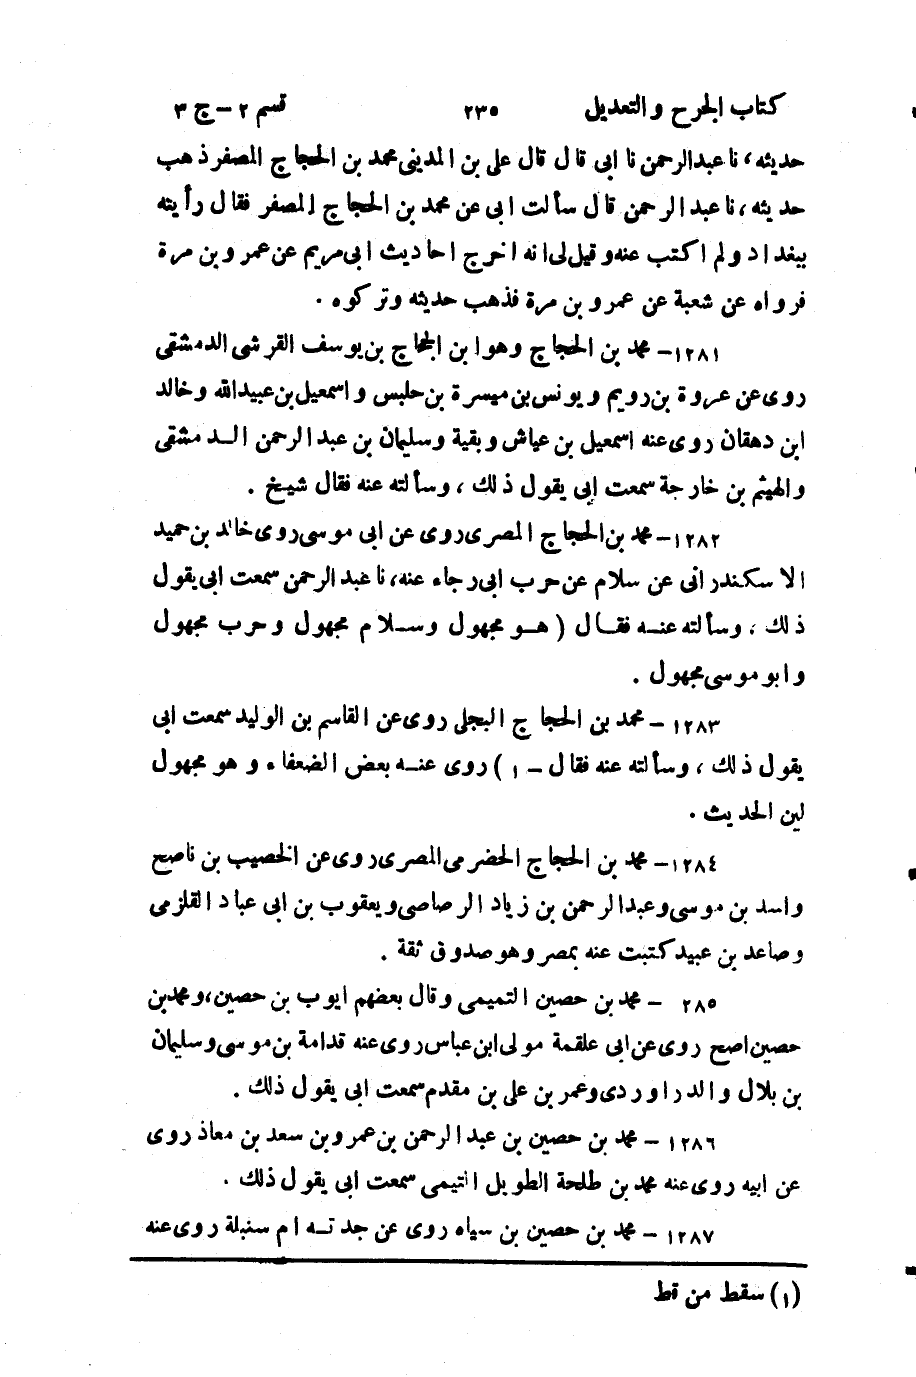 كتاب الجرح والتعديل ٢٣٥ قسم ٢ - ج ٣
حديثه، نا عبدالرحمن نا ابى قال قال على بن المدينى محمد بن الحجاج المصفر ذهب
حديثه، نا عبد الرحمن قال سألت ابى عن محمد بن الحجاج المصفر فقال رأيته
ببغداد ولم اكتب عنه وقيل لى انه اخرج احاديث ابى مريم عن عمرو بن مرة
فرواه عن شعبة عن عمرو بن مرة فذهب حديثه وتركوه .
١٢٨١ - محمد بن الحجاج وهو ابن الحجاج بن يوسف القرشى الدمشقى
روى عن عروة بن رويم ويونس بن ميسرة بن حلبس واسمعيل بن عبيدالله وخالد
ابن دهقان روى عنه اسمعيل بن عياش وبقية وسليمان بن عبد الرحمن الدمشقى
والهيثم بن خارجة سمعت ابى يقول ذلك ، وسألته عنه فقال شيخ .
١٢٨٢ - محمد بن الحجاج المصرى روى عن ابى موسى روى خالد بن حميد
الاسكندرانى عن سلام عن حرب ابى رجاء عنه، نا عبد الرحمن سمعت ابى يقول
ذلك ، وسألته عنه فقال ( هو مجهول وسلام مجهول وحرب مجهول
وابو موسى مجهول .
١٢٨٣ - محمد بن الحجاج البجلى روى عن القاسم بن الوليد سمعت ابى
يقول ذلك ، وسألته عنه فقال - ١ ) روى عنه بعض الضعفاء وهو مجهول
لين الحديث .
١٢٨٤ - محمد بن الحجاج الحضرمى المصرى روى عن الخصيب بن ناصح
واسد بن موسى وعبدالرحمن بن زياد الرصاصى ويعقوب بن ابى عباد القلزمى
وصاعد بن عبيد كتبت عنه بمصر وهو صدوق ثقة .
٢٨٥ - محمد بن حصين التميمى وقال بعضهم ايوب بن حصين، ومحمد بن
حصين اصح روى عن ابى علقمة مولى ابن عباس روى عنه قدامة بن موسى وسليمان
بن بلال والدراوردى وعمر بن على بن مقدم سمعت ابى يقول ذلك .
١٢٨٦ - محمد بن حصين بن عبد الرحمن بن عمرو بن سعد بن معاذ روى
عن ابيه روى عنه محمد بن طلحة الطويل التيمى سمعت ابى يقول ذلك .
١٢٨٧ - محمد بن حصين بن سياه روى عن جدته ام سنبلة روى عنه
(١) سقط من قط